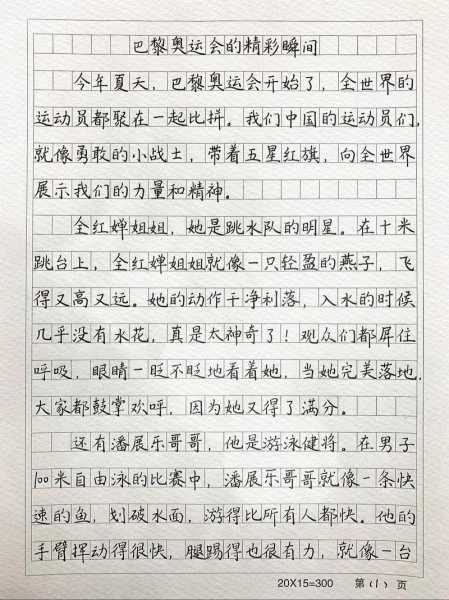 巴黎奥运会的精彩瞬间
今年夏天，巴黎奥运会开始了，全世界的
运动员都聚在一起比拼。我们中国的运动员们，
就像勇敢的小战士，带着五星红旗，向全世界
展示我们的力量和精神。
全红婵姐姐，她是跳水队的明星。在十米
跳台上，全红婵姐姐就像一只轻盈的燕子，飞
得又高又远。她的动作干净利落，入水的时候
几乎没有水花，真是太神奇了！观众们都屏住
呼吸，眼睛一眨不眨地看着她，当她完美落地，
大家都鼓掌欢呼，因为她又得了满分。
还有潘展乐哥哥，他是游泳健将。在男子
100米自由泳的比赛中，潘展乐哥哥就像一条快
速的鱼，划破水面，游得比所有人都快。他的
手臂挥动得很快，腿踢得也很有力，就像一台
20X15=300 第(1)页